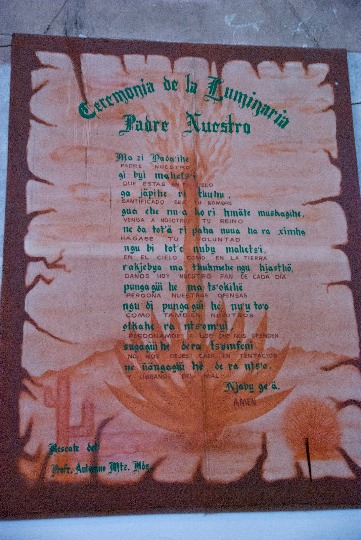 Ceremonia de la Luminaria
Padre Nuestro
Ma zi Dada'ihe
PADRE NUESTRO
gi bʉi mahets'i
QUE ESTAS EN EL CIELO
ga japihe ri thuhu,
SANTIFICADO SEA TU NOMBRE
gua ehe nu a ho ri hmäte muskagihe,
VENGA A NOSOTROS TU REINO
ne da tot'a ri paha nuua ha ra ximha
HAGASE TU VOLUNTAD
ngu bi tot'e nubu mahets'i,
EN EL CIELO COMO EN LA TIERRA
rakjebya ma thuhmehe ngu hjasthö
DANOS HOY NUESTRO PAN DE CADA DIA
pungagüi he ma ts'okihe
PERDONA NUESTRAS OFENSAS
ngu di pungagüi he nu'y to'o
COMO TAMBIEN NOSOTROS
otkahe ra nts'omyui
PERDONAMOS A LOS QUE NOS OFENDEN
sugagüi he de ra tsomfeni
NO NOS DEJES CAER EN TENTACION
ne üöngagüi he de ra nts'o.
Y LIBRANOS DEL MAL
Njabu ge'ä.
AMEN
Rescate del
Profr. Antonino Mtz. Hdz.